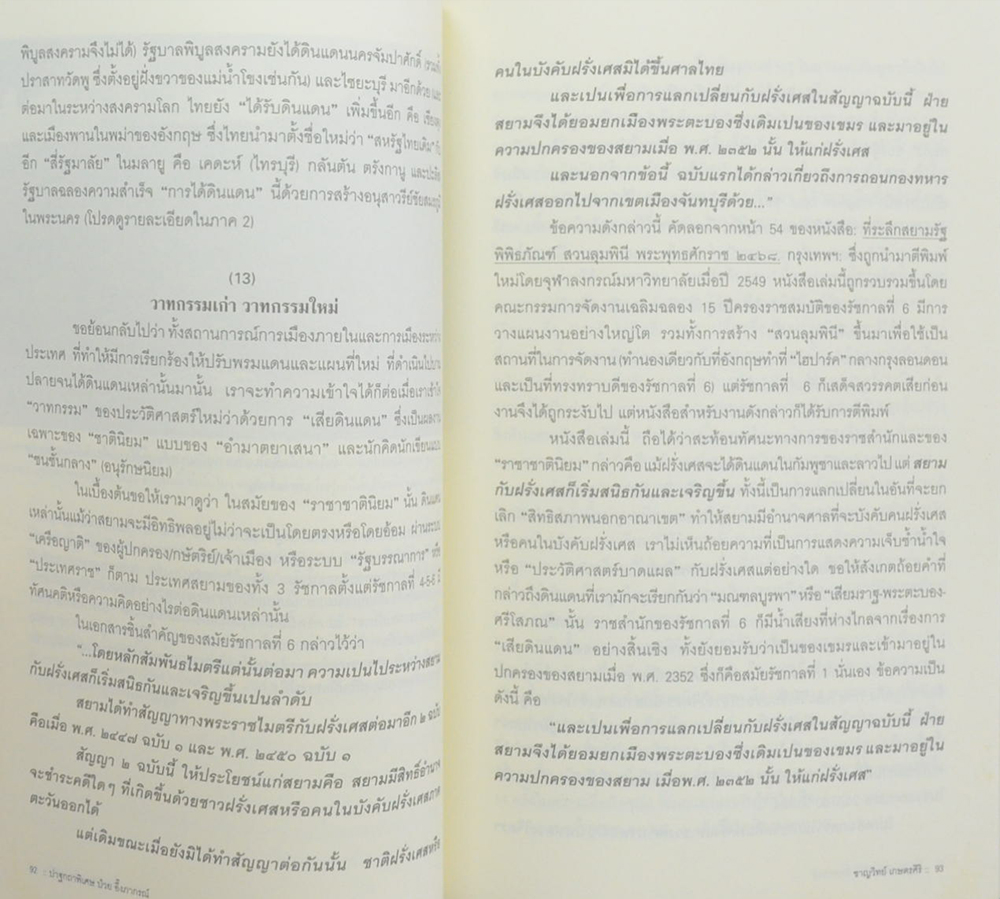 พิบูลสงครามจึงไม่ได้) รัฐบาลพิบูลสงครามยังได้ดินแดนนครจัมปาศักดิ์
ปราสาทวัดพู ซึ่งตั้งอยู่ฝั่งขวาของแม่น้ำโขงเช่นกัน) และไซยะบุรี มาอีกด้วย และ
ต่อมาในระหว่างสงครามโลก ไทยยัง “ได้รับดินแดน” เพิ่มขึ้นอีก คือ
และเมืองพานในพม่าของอังกฤษ ซึ่งไทยนำมาตั้งชื่อใหม่ว่า “สหรัฐไทยเดิม”
อีก “สี่รัฐมาลัย” ในมลายู คือ เคดะห์ (ไทรบุรี) กลันตัน ตรังกานู และปะลิส
รัฐบาลฉลองความสำเร็จ “การได้ดินแดน” นี้ด้วยการสร้างอนุสาวรีย์ชัยสมรภูมิ
ในพระนคร (โปรดดูรายละเอียดในภาค 2)
(13)
วาทกรรมเก่า วาทกรรมใหม่
ขอย้อนกลับไปว่า ทั้งสถานการณ์การเมืองภายในและการเมืองระหว่าง
ประเทศ ที่ทำให้มีการเรียกร้องให้ปรับพรมแดนและแผนที่ใหม่ ที่ดำเนินไปจน
ปลายจนได้ดินแดนเหล่านั้นมานั้น เราจะทำความเข้าใจได้ก็ต่อเมื่อเราเข้าใจ
“วาทกรรม” ของประวัติศาสตร์ใหม่ว่าด้วยการ “เสียดินแดน” ซึ่งเป็นผลงาน
เฉพาะของ “ชาตินิยม” แบบของ “อำมาตยาเสนา” และนักคิดนักเขียนแบบ
“ชนชั้นกลาง” (อนุรักษนิยม)
ในเบื้องต้นขอให้เรามาดูว่า ในสมัยของ “ราชาชาตินิยม” นั้น ดินแดน
เหล่านั้นแม้ว่าสยามจะมีอิทธิพลอยู่ไม่ว่าจะเป็นโดยตรงหรือโดยอ้อม ผ่านระบบ
“เครือญาติ” ของผู้ปกครอง/กษัตริย์/เจ้าเมือง หรือระบบ “รัฐบรรณาการ” หรือ
“ประเทศราช” ก็ตาม ประเทศสยามของทั้ง 3 รัชกาลตั้งแต่รัชกาลที่ 4-5-6 มี
ทัศนคติหรือความคิดอย่างไรต่อดินแดนเหล่านั้น
ในเอกสารชิ้นสำคัญของสมัยรัชกาลที่ 6 กล่าวไว้ว่า
“...โดยหลักสัมพันธไมตรีแต่นั้นต่อมา ความเปนไประหว่างสยาม
กับฝรั่งเศสก็เริ่มสนิธกันและเจริญขึ้นเปนลำดับ
สยามได้ทำสัญญาทางพระราชไมตรีกับฝรั่งเศสต่อมาอีก ๒ ฉบับ
คือเมื่อ พ.ศ. ๒๔๔๗ ฉบับ ๑ และ พ.ศ. ๒๔๕๐ ฉบับ ๑
สัญญา ๒ ฉบับนี้ ให้ประโยชน์แก่สยามคือ สยามมีสิทธิ์อำนาจ
จะชำระคดีใดๆ ที่เกิดขึ้นด้วยชาวฝรั่งเศสหรือคนในบังคับฝรั่งเศสภาค
ตะวันออกได้
แต่เดิมขณะเมื่อยังมิได้ทำสัญญาต่อกันนั้น ชาติฝรั่งเศสหรือ
92 :: ปาฐกถาพิเศษ ป๋วย อึ๊งภากรณ์
คนในบังคับฝรั่งเศสมิได้ขึ้นศาลไทย
และเปนเพื่อการแลกเปลี่ยนกับฝรั่งเศสในสัญญาฉบับนี้ ฝ่าย
สยามจึงได้ยอมยกเมืองพระตะบองซึ่งเดิมเปนของเขมร และมาอยู่ใน
ความปกครองของสยามเมื่อ พ.ศ. ๒๓๕๒ นั้น ให้แก่ฝรั่งเศส
และนอกจากข้อนี้ ฉบับแรกได้กล่าวเกี่ยวถึงการถอนกองทหาร
ฝรั่งเศสออกไปจากเขตเมืองจันทบุรีด้วย...”
ข้อความดังกล่าวนี้ คัดลอกจากหน้า 54 ของหนังสือ: ที่ระลึกสยามรัฐ
พิพิธภัณฑ์ สวนลุมพินี พระพุทธศักราช ๒๔๖๘. กรุงเทพฯ: ซึ่งถูกนำมาตีพิมพ์
ใหม่โดยจุฬาลงกรณ์มหาวิทยาลัยเมื่อปี 2549 หนังสือเล่มนี้ถูกรวบรวมขึ้นโดย
คณะกรรมการจัดงานเฉลิมฉลอง 15 ปีครองราชสมบัติของรัชกาลที่ 6 มีการ
วางแผนงานอย่างใหญ่โต รวมทั้งการสร้าง “สวนลุมพินี” ขึ้นมาเพื่อใช้เป็น
สถานที่ในการจัดงาน (ทำนองเดียวกับที่อังกฤษทำที่ “ไฮปาร์ค” กลางกรุงลอนดอน
และเป็นที่ทรงทราบดีของรัชกาลที่ 6) แต่รัชกาลที่ 6 ก็เสด็จสวรรคตเสียก่อน
งานจึงได้ถูกระงับไป แต่หนังสือสำหรับงานดังกล่าวก็ได้รับการตีพิมพ์
หนังสือเล่มนี้ ถือได้ว่าสะท้อนทัศนะทางการของราชสำนักและของ
“ราชาชาตินิยม” กล่าวคือ แม้ฝรั่งเศสจะได้ดินแดนในกัมพูชาและลาวไป แต่ สยาม
กับฝรั่งเศสก็เริ่มสนิธกันและเจริญขึ้น ทั้งนี้เป็นการแลกเปลี่ยนในอันที่จะยก
เลิก “สิทธิสภาพนอกอาณาเขต” ทำให้สยามมีอำนาจศาลที่จะบังคับคนฝรั่งเศส
หรือคนในบังคับฝรั่งเศส เราไม่เห็นถ้อยความที่เป็นการแสดงความเจ็บช้ำน้ำใจ
หรือ “ประวัติศาสตร์บาดแผล” กับฝรั่งเศสแต่อย่างใด ขอให้สังเกตถ้อยคำที่
กล่าวถึงดินแดนที่เรามักจะเรียกกันว่า “มณฑลบูรพา” หรือ “เสียมราฐ-พระตะบอง-
ศรีโสภณ” นั้น ราชสำนักของรัชกาลที่ 6 ก็มีน้ำเสียงที่ห่างไกลจากเรื่องการ
“เสียดินแดน” อย่างสิ้นเชิง ทั้งยังยอมรับว่าเป็นของเขมรและเข้ามาอยู่ใน
ปกครองของสยามเมื่อ พ.ศ. 2352 ซึ่งก็คือสมัยรัชกาลที่ 1 นั่นเอง ข้อความเป็น
ดังนี้ คือ
“และเปนเพื่อการแลกเปลี่ยนกับฝรั่งเศสในสัญญาฉบับนี้ ฝ่าย
สยามจึงได้ยอมยกเมืองพระตะบองซึ่งเดิมเปนของเขมร และมาอยู่ใน
ความปกครองของสยาม เมื่อพ.ศ. ๒๓๕๒ นั้น ให้แก่ฝรั่งเศส”
ชาญวิทย์ เกษตรศิริ :: 93